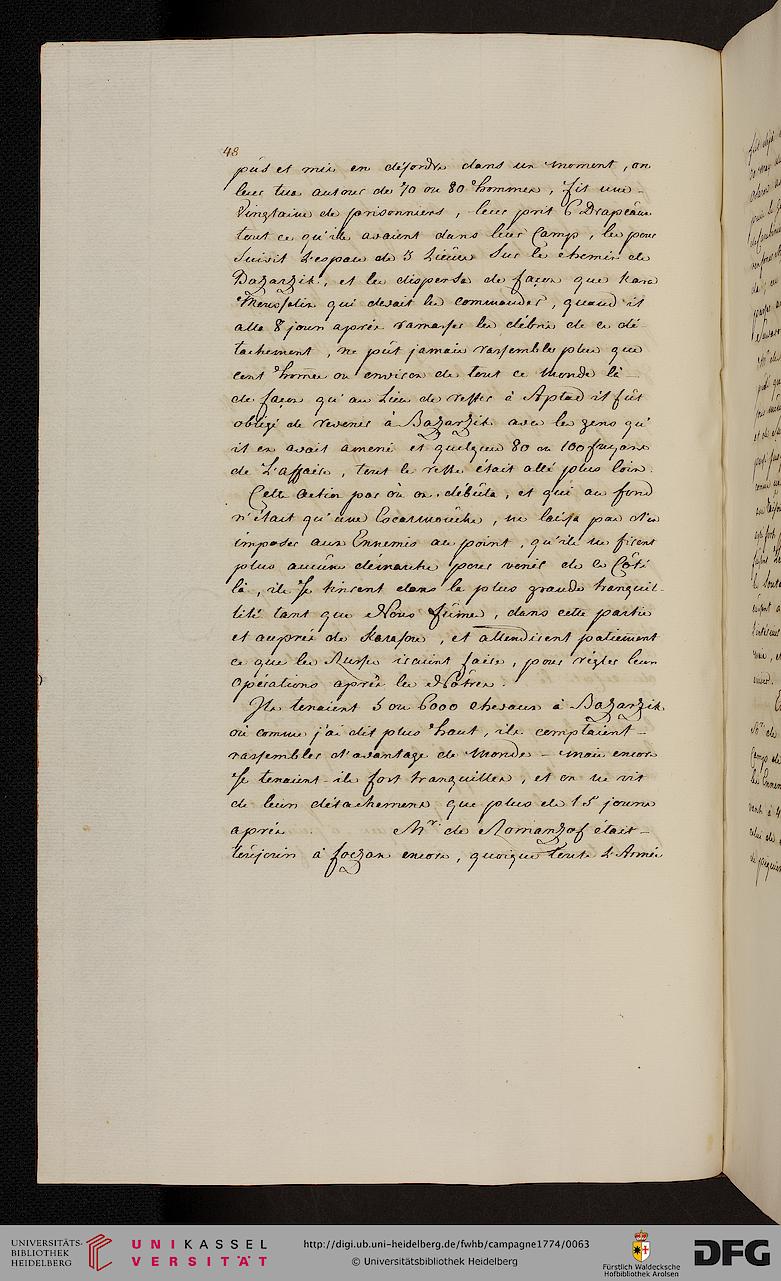 48
pûs et mis en désordre dans un moment, on
leur tua autour de 70 ou 80 hommes, fit une
Vingtaine de prisonniers, leur prit 6 Drapeaux
tout ce qu'ils avaient dans leur Camp, les pour
Suivit l'espace de 3 Lieües Sur le chemin de
Bazarzik, et les dispersa de façon que Kara
qui devait les commander, quand il
alla 8 jours après ramasser les débris de ce dé-
tachement, ne pût jamais rassembler plus que
cent homes ou environ de tout ce Monde là
de façon qu'au Lieu de rester à Aptad il fût
obligé de revenir à Bazarzik avec les gens qu'
il en avait amené et quelques 80 ou 100 fuyans
de L'affaire, tout le reste était allé plus loin.
Cette Action par où on débûta, et qui au fond
n'était qu'une Escarmouche, ne laissa pas d'en
imposer aux Ennemis au point, qu'ils ne firent
plus aucune démarche pour venir de ce Côté
là, ils Se tinrent dans la plus grande tranquil-
lité tant que Nous fûmes, dans cette partie
et auprès de Karasou, et attendirent patiement
ce que les Russes iraient faire, pour régler leurs
Opérations après les Nôtres.
Ils tenaient 5 ou 6000 chevaux à Bazarzik
où comme j'ai dit plus haut, ils comptaient
rassembler d'avantage de Monde - mais encore
Se tenaient-ils fort tranquilles, et on ne vit
de leurs détachemens que plus de 15 jours
après. Mr. de Romanzof était
toujours à foczan encore, quoique toute l'Armée
UNIVERSITÄTS-
BIBLIOTHEK
HEIDELBERG
UNIKASSEL
VERSITÄT
http://digi.ub.uni-heidelberg.de/fwhb/campagne1774/0063
© Universitätsbibliothek Heidelberg
Fürstlich Waldecksche
Hofbibliothek Arolsen
DFG